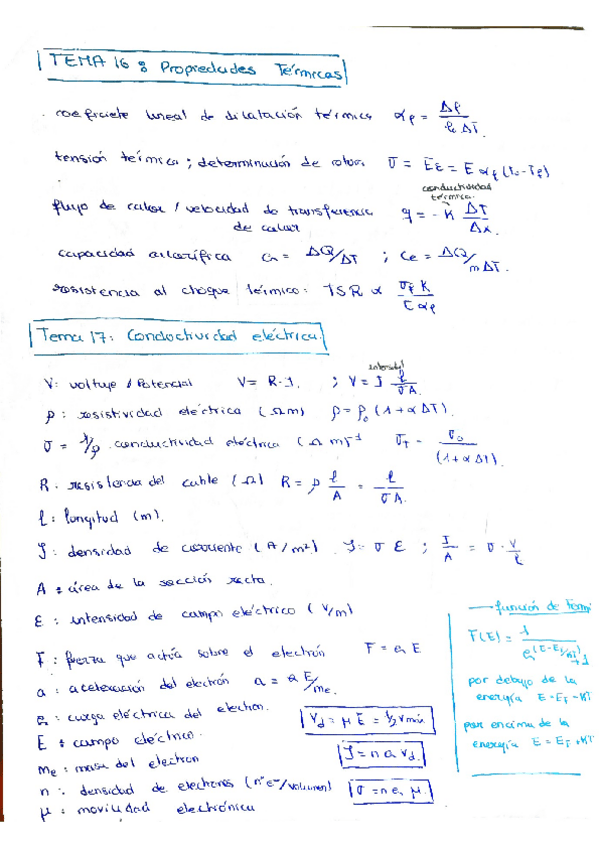 TEMA 16: Propiedades Térmicas
· coeficiente lineal de dilatación térmica αℓ = Δℓ / ℓ₀ ΔT
tensión térmica; determinación de rotura σ = Eε = E αℓ (T₀ - Tf)
conductividad térmica
flujo de calor / velocidad de transferencia de calor q = - K ΔT / Δx
capacidad calorífica Ca = ΔQ/ΔT ; Ce = ΔQ/mΔT.
resistencia al choque térmico: TSR α σF K / E αℓ
Tema 17: Conductividad eléctrica.
V: voltaje / Potencial V = R·I. ; V = I ℓ / σA.
ρ: resistividad eléctrica (Ωm) ρ = ρ₀ (1 + α ΔT).
σ = 1/ρ conductividad eléctrica (Ω m)⁻¹ σT = σ₀ / (1 + α ΔT).
R: resistencia del cable (Ω) R = ρ ℓ/A = ℓ / σA.
ℓ: longitud (m).
J: densidad de corriente (A/m²). J = σ E ; I/A = σ · V/ℓ
A: área de la sección recta.
E: intensidad de campo eléctrico (V/m)
F: fuerza que actúa sobre el electrón F = e E
a: aceleración del electrón a = e E/me.
e: carga eléctrica del electron. Vd = μ E = 1/2 vmáx
E: campo eléctrico.
me: masa del electron J = n e vd.
n: densidad de electrones (nºe⁻/volumen) σ = n e μ.
μ: movilidad electrónica
función de Fermi
F(E) = 1 / e^(E-EF)/KT + 1
por debajo de la
energía E = EF - KT
por encima de la
energía E = EF + KT